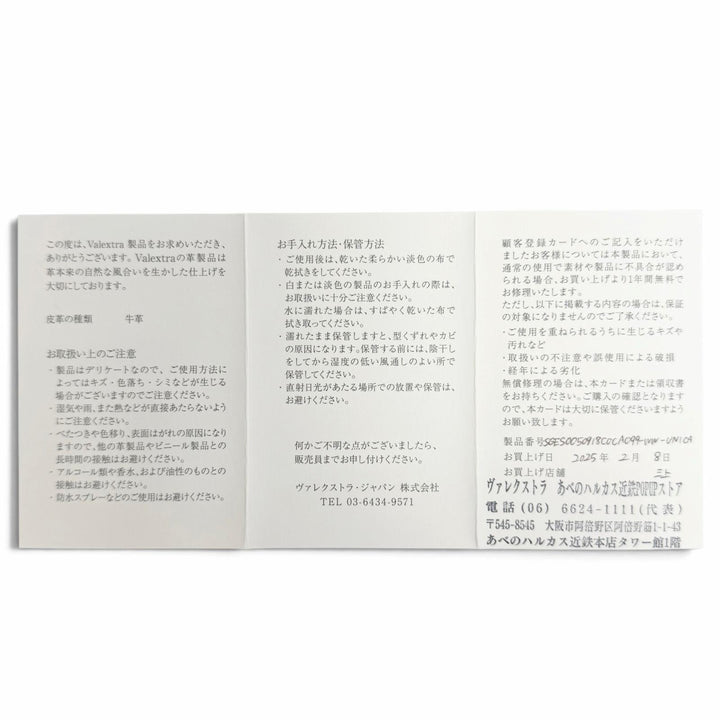 この度は、Valextra 製品をお求めいただき、
ありがとうございます。Valextraの革製品は
革本来の自然な風合いを生かした仕上げを
大切にしております。
皮革の種類 牛革
お取扱い上のご注意
・製品はデリケートなので、ご使用方法に
よってはキズ・色落ち・シミなどが生じる
場合がございますのでご注意ください。
・湿気や雨、また熱などが直接あたらないよう
にご注意ください。
・べたつきや色移り、表面はがれの原因になりま
すので、他の革製品やビニール製品との
長時間の接触はお避けください。
・アルコール類や香水、および油性のものとの
接触はお避けください。
・防水スプレーなどのご使用はお避けください。
お手入れ方法・保管方法
・ご使用後は、乾いた柔らかい淡色の布で
乾拭きをしてください。
・白または淡色の製品のお手入れの際は、
お取扱いに十分ご注意ください。
水に濡れた場合は、すばやく乾いた布で
拭き取ってください。
・濡れたまま保管しますと、型くずれやカビ
の原因になります。保管する前には、陰干し
をしてから湿度の低い風通しのよい所で
保管してください。
・直射日光があたる場所での放置や保管は、
お避けください。
何かご不明な点がございましたら、
販売員までお申し付けください。
ヴァレクストラ・ジャパン 株式会社
TEL 03-6434-9571
顧客登録カードへのご記入をいただけ
ましたお客様については本製品において、
通常の使用で素材や製品に不具合が認めら
れる場合、お買い上げより1年間無料で
お修理いたします。
ただし、以下に掲載する内容の場合は、保証
の対象になりませんのでご了承ください。
・ご使用を重ねられるうちに生じるキズや
汚れなど
・取扱いの不注意や誤使用による破損
・経年による劣化
無償修理の場合は、本カードまたは領収書
をお持ちください。ご購入の確認となります
ので、本カードは大切に保管くださいますよう
お願い致します。
製品番号
お買上げ日 2025年 2月 8日
お買上げ店舗
ヴァレクストラ あべのハルカス近鉄POPUPストア
電話(06) 6624-1111(代表)
〒545-8545 大阪市阿倍野区阿倍野筋1-1-43
あべのハルカス近鉄本店タワー館1階